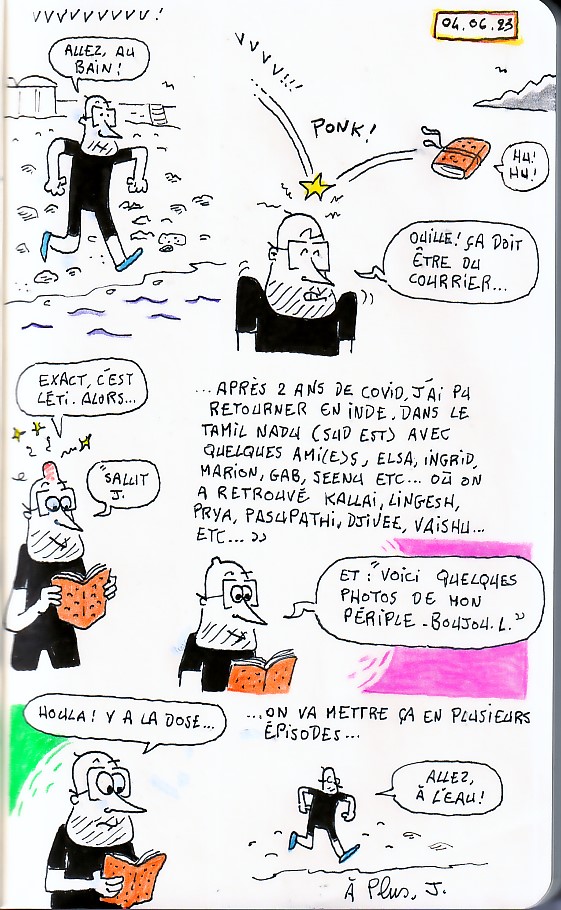 VVVVVVVVV!
04.06.23
ALLEZ, AU
BAIN!
VVVV!!!
PONK!
HU!
HU!
OUILLE! ÇA DOIT
ÊTRE DU
COURRIER...
EXACT, C'EST
LÉTI. ALORS...
"SALUT
J.
...APRÈS 2 ANS DE COVID, J'AI PU
RETOURNER EN INDE. DANS LE
TAMIL NADU (SUD EST) AVEC
QUELQUES AMI(E)S, ELSA, INGRID,
MARION, GAB, SEENU ETC... OÙ ON
A RETROUVÉ KALLAI, LINGESH,
PRYA, PASUPATHI, DJIVEE, VAISHU...
ETC... »
ET : "VOICI QUELQUES
PHOTOS DE MON
PÉRIPLE - BOUJOU. L."
HOULA! Y A LA DOSE...
...ON VA METTRE ÇA EN PLUSIEURS
ÉPISODES...
ALLEZ,
À L'EAU!
À Plus, J.